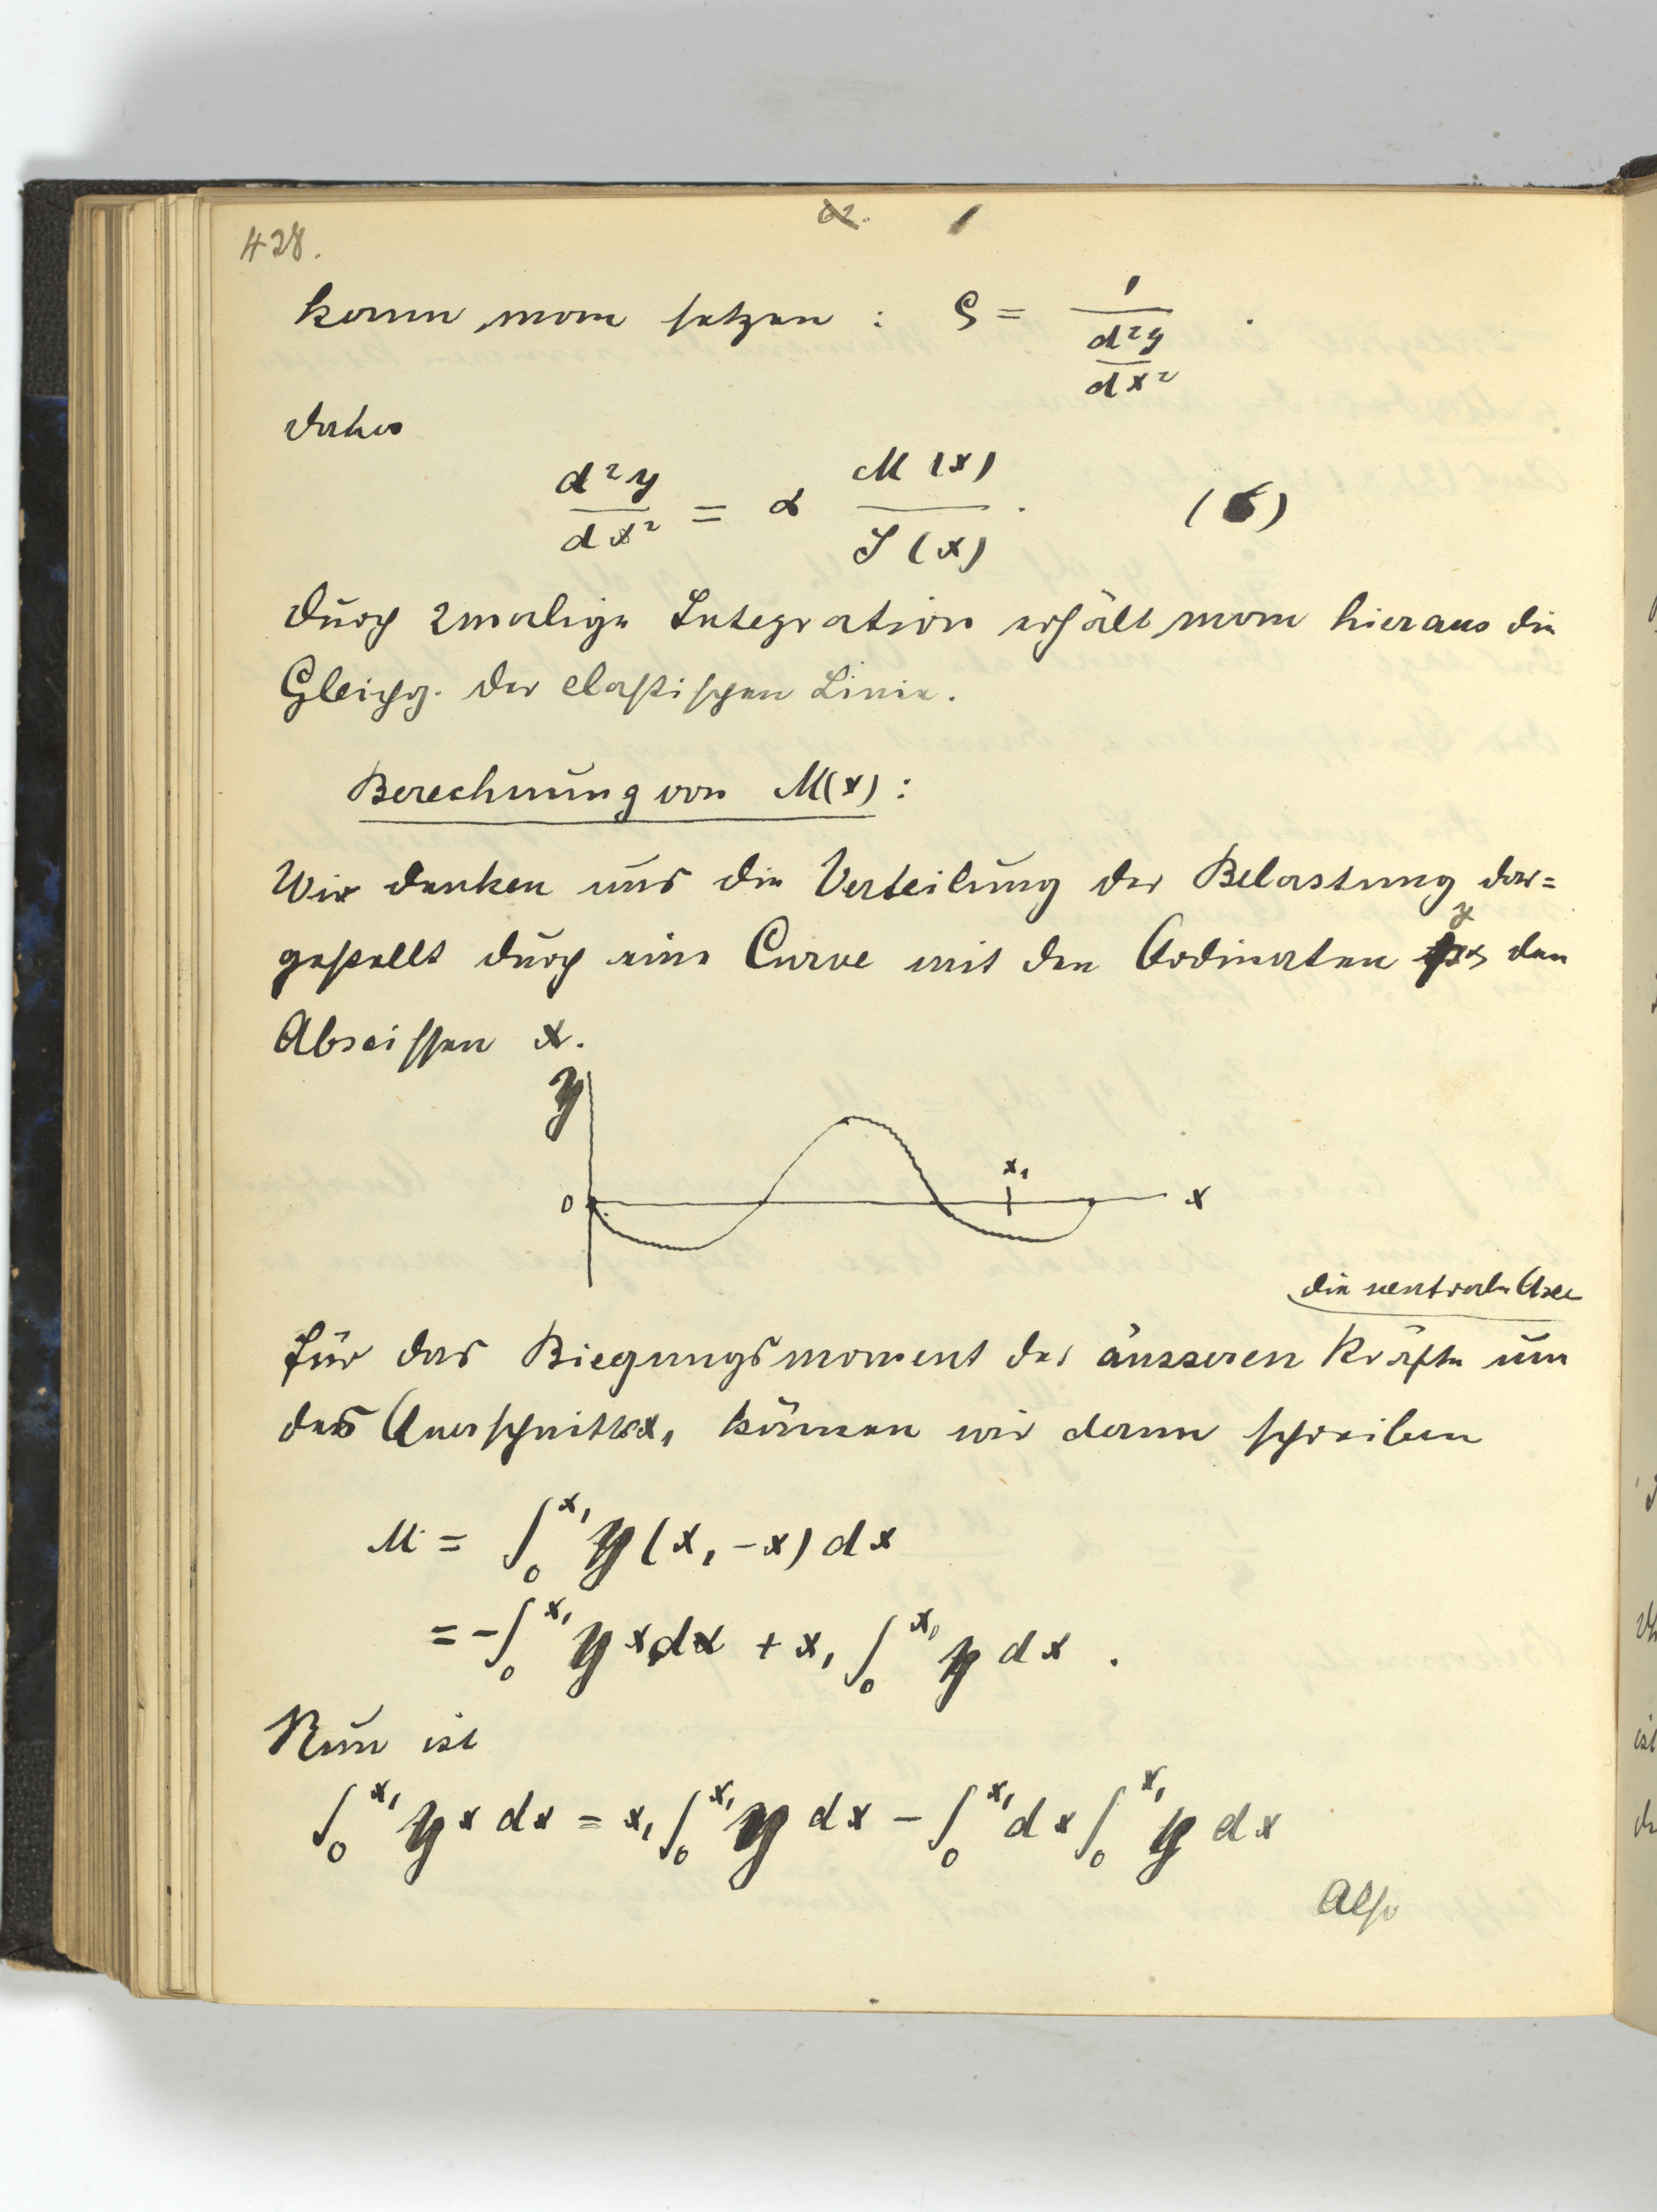 428.
kann man setzen : ϱ = 1 / (d²y / dx²) .
daher
d²y / dx² = α M(x) / J(x) . (6)
Durch 2malige Integration erhält man hieraus die
Gleichg. der elastischen Linie.
Berechnung von M(x) :
Wir denken uns die Verteilung der Belastung dar=
gestellt durch eine Curve mit den Ordinaten y den
Abscissen x.
y
x₁
0 x
die neutrale Axe
Für das Biegungsmoment der äusseren Kräfte um
des Querschnittes x₁ können wir dann schreiben
M = ∫₀^x₁ y (x₁ - x) dx
= - ∫₀^x₁ y x dx + x₁ ∫₀^x₁ y dx .
Nun ist
∫₀^x₁ y x dx = x₁ ∫₀^x₁ y dx - ∫₀^x₁ dx ∫₀^x₁ y dx
Also